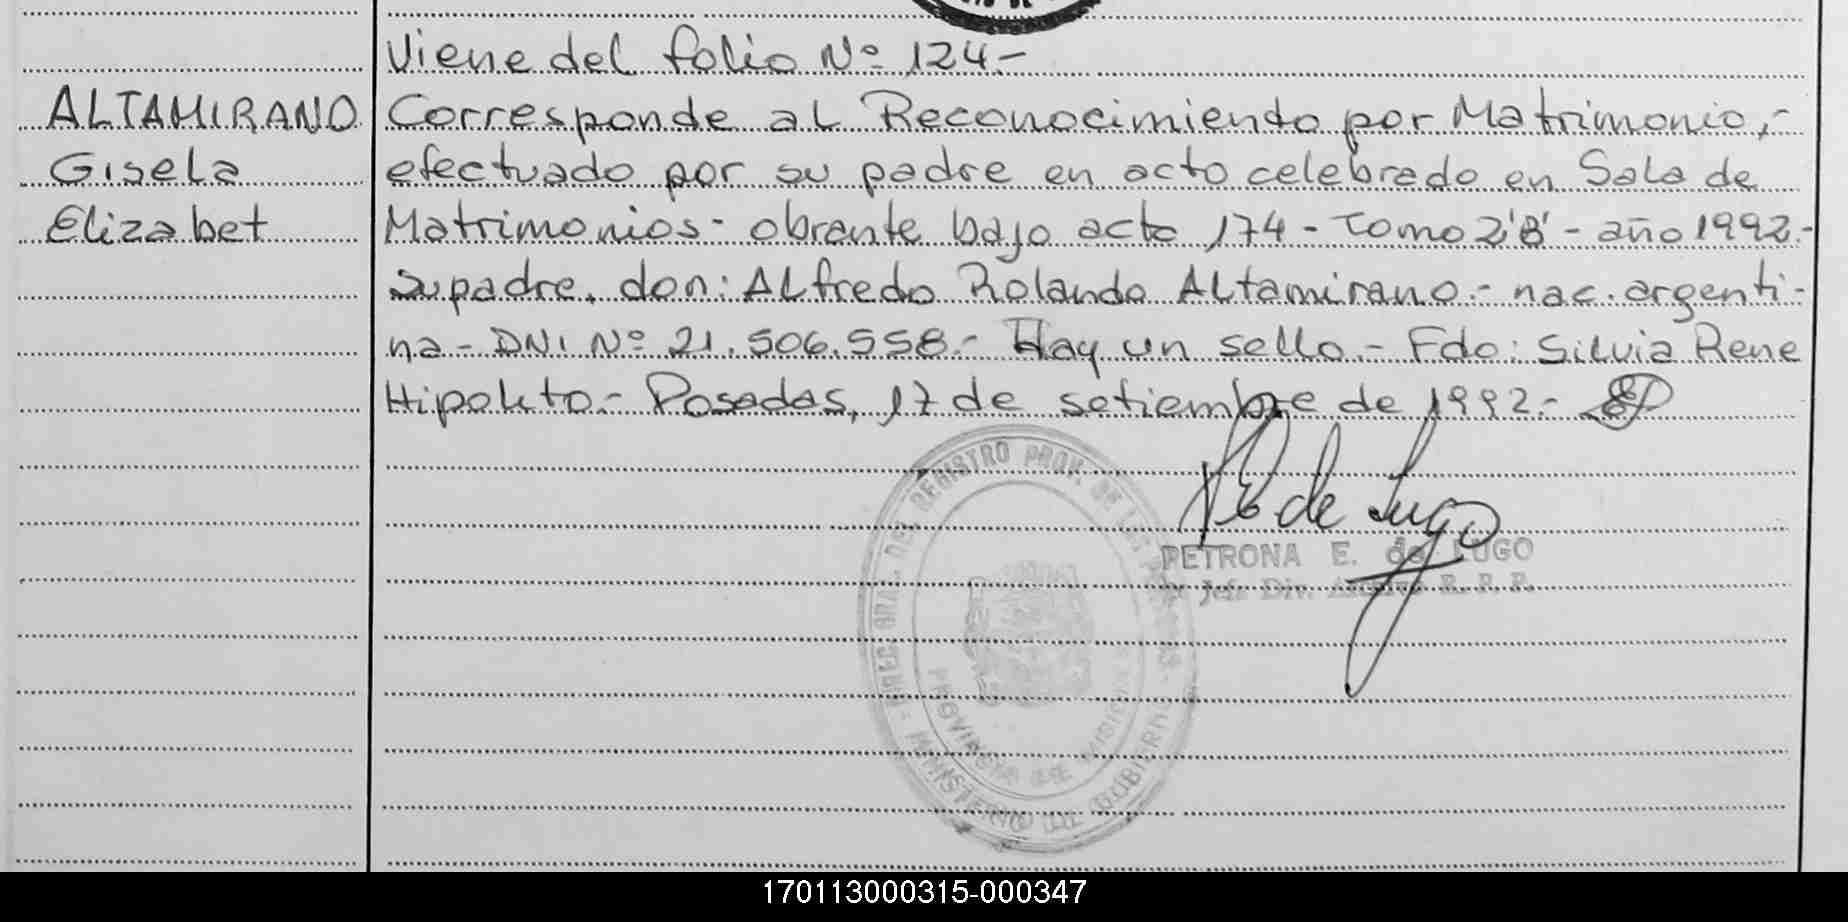 Viene del folio Nº 124.-
ALTAMIRANO
Gisela
Elizabet
Corresponde al Reconocimiento por Matrimonio,-
efectuado por su padre en acto celebrado en Sala de
Matrimonios- obrante bajo acta 174 - Tomo 2'B' - año 1992.-
Su padre, don: Alfredo Rolando Altamirano.- nac. argenti-
na - DNI Nº 21.506.558.- Hay un sello.- Fdo: Silvia Rene
Hipolito.- Posadas, 17 de setiembre de 1992.-
de Lugo
PETRONA E. de LUGO
Jefe Div. Archivo R. P. P.
DIREC. GRAL. DEL REGISTRO PROV. DE LAS PERSONAS
MINISTERIO DE GOBIERNO
PROVINCIA DE MISIONES
170113000315-000347